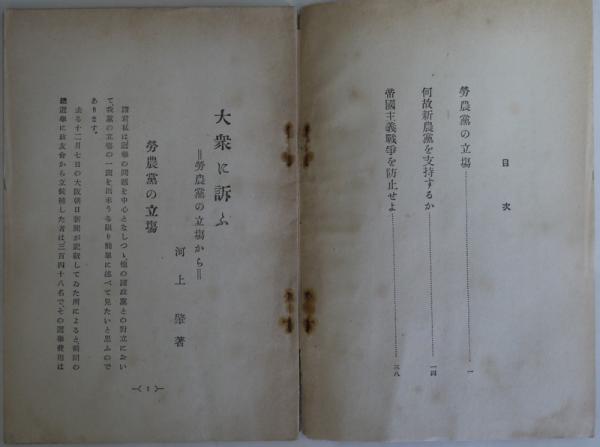 目次
勞農黨の立場……一
何故新農黨を支持するか……一四
帝國主義戰爭を防止せよ……三八
大衆に訴ふ
＝勞農黨の立場から＝
河上肇著
勞農黨の立場
諸君私は選擧の問題を中心となしつゝ他の諸政黨との對立におい
て、我黨の立場の一面を出來うる限り簡單に述べて見たいと思ふので
あります。
去る十二月七日の大阪朝日新聞が記載してゐた所によると、前回の
總選擧に政友會から立候補した者は三百四十八名で、その選擧費用は
一